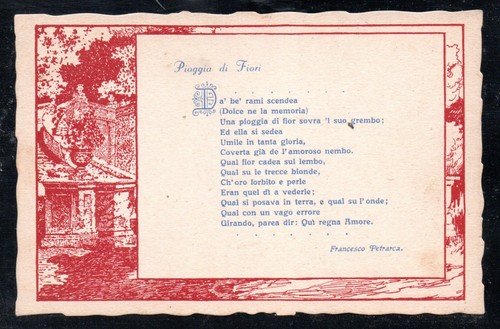 Pioggia di Fiori
. . . . . . . . . .
Da' be' rami scendea
(Dolce ne la memoria)
Una pioggia di fior sovra 'l suo grembo;
Ed ella si sedea
Umile in tanta gloria,
Coverta già de l'amoroso nembo.
Qual fior cadea sul lembo,
Qual su le trecce bionde,
Ch'oro forbito e perle
Eran quel dì a vederle;
Qual si posava in terra, e qual su l'onde;
Qual con un vago errore
Girando, parea dir: Quì regna Amore.
. . . . . . . .
Francesco Petrarca.